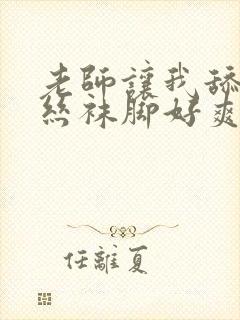 老師讓我舔
絲袜脚好爽
任離夏